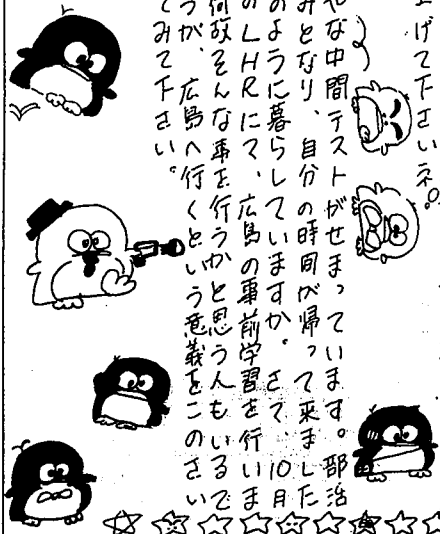 上げて下さいネ。
やな中間テストがせまっています。部活
みとなり、自分の時間が帰って来ました
のように暮らしていますか。さて、10月
のLHRにて、広島の事前学習を行いま
何故そんな事を行うかと思う人もいるで
うが、広島へ行くという意義をこのさい
てみて下さい。